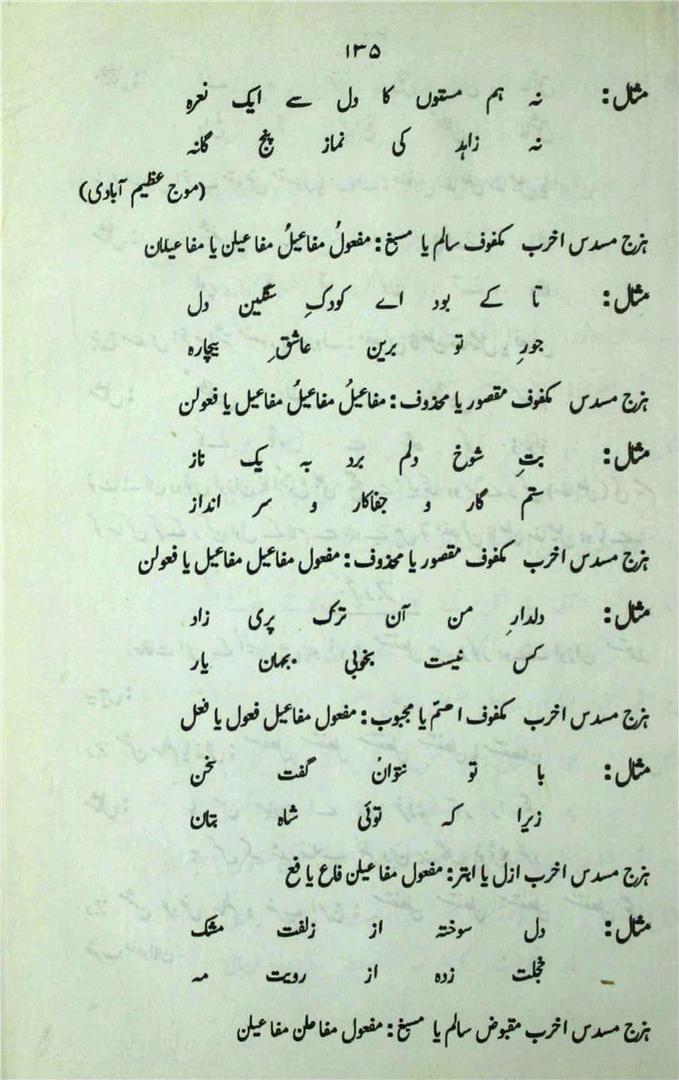 ۱۳۵
مثال: نہ ہم مستوں کا دل سے ایک نعرہ
نہ زاہد کی نماز پنج گانہ
(موج عظیم آبادی)
ہزج مسدس اخرب مکفوف سالم یا مسبغ: مفعولُ مفاعیلُ مفاعیلن یا مفاعیلان
مثال: تا کے بود اے کودکِ سنگین دل
جورِ تو برین عاشقِ بیچارہ
ہزج مسدس مکفوف مقصور یا محذوف: مفاعیلُ مفاعیلُ مفاعیل یا فعولن
مثال: بتِ شوخ دلم برد بہ یک ناز
ستم گار و جفاکار و سر انداز
ہزج مسدس اخرب مکفوف مقصور یا محذوف: مفعول مفاعیل مفاعیل یا فعولن
مثال: دلدارِ من آن ترک پری زاد
کس نیست بخوبی بجہان یار
ہزج مسدس اخرب مکفوف اہتم یا مجبوب: مفعول مفاعیل فعول یا فعل
مثال: با تو نتوان گفت سخن
زیرا کہ توئی شاہ بتان
ہزج مسدس اخرب ازل یا ابتر: مفعول مفاعیلن فاع یا فع
مثال: دل سوختہ از زلفت مشک
خجلت زدہ از رویت مہ
ہزج مسدس اخرب مقبوض سالم یا مسبغ: مفعول مفاعلن مفاعیلن